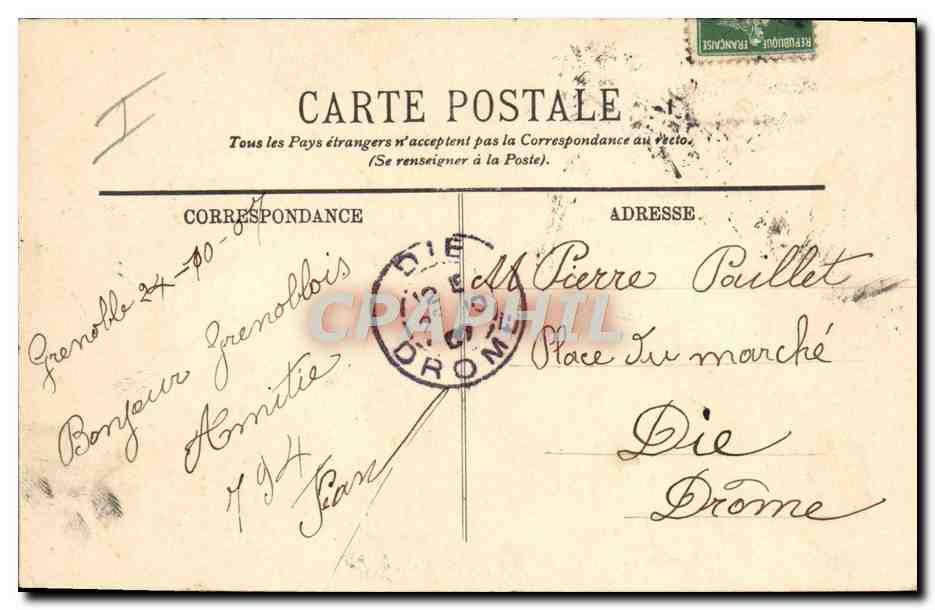 REPUBLIQUE FRANÇAISE
CARTE POSTALE
Tous les Pays étrangers n'acceptent pas la Correspondance au recto.
(Se renseigner à la Poste).
CORRESPONDANCE
Grenoble 24-10-07
Bonjour Grenoblois
Amitie
794
Jean
DIE
DROME
CPAPHIL
ADRESSE
M Pierre Paillet
Place du marché
Die
Drôme
I